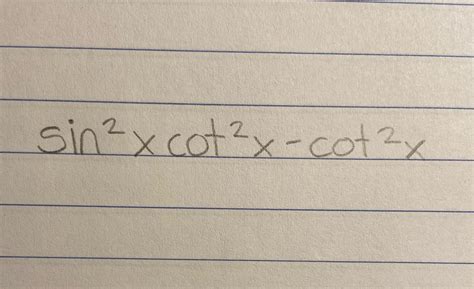 sin²xcot²x-cot²x